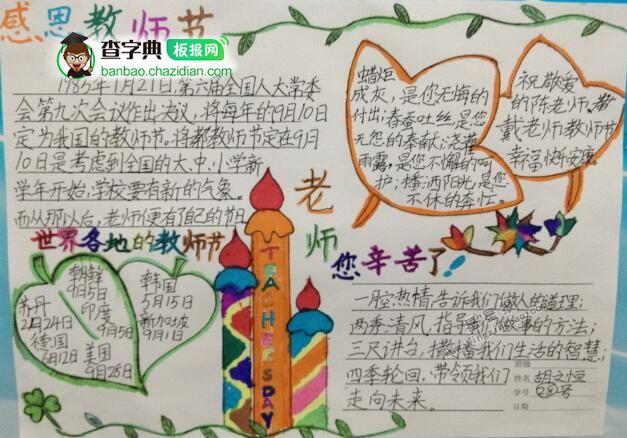 感恩教师节
查字典 板报网
banbao.chazidian.com
1985年1月21日,第六届全国人大常委
会第九次会议作出决议,将每年的9月10日
定为我国的教师节。将教师节定在9月
10日是考虑到全国的大、中、小学新
学年开始,学校要有新的气象。
而从那以后,老师便有了自己的节日
世界各地的教师节
朝鲜
9月5日
印度
9月5日
苏丹
2月24日
德国
6月12日
美国
9月28日
韩国
5月15日
新加坡
9月1日
TEACHERSDAY
蜡炬
成灰,是您无悔的
付出;春蚕吐丝是您
无怨的奉献;浇灌
雨露,是您不懈的呵
护;播洒阳光,是您
不休的奔忙。
祝敬爱
的陈老师、
戴老师教师节
幸福快乐安康。
老师
您辛苦了!
一腔热情,告诉我们做人的道理;
两袖清风,指导我们做事的方法;
三尺讲台,播撒着我们生活的智慧;
四季轮回,带领我们
走向未来。
班级
姓名 胡之恒
学号
日期